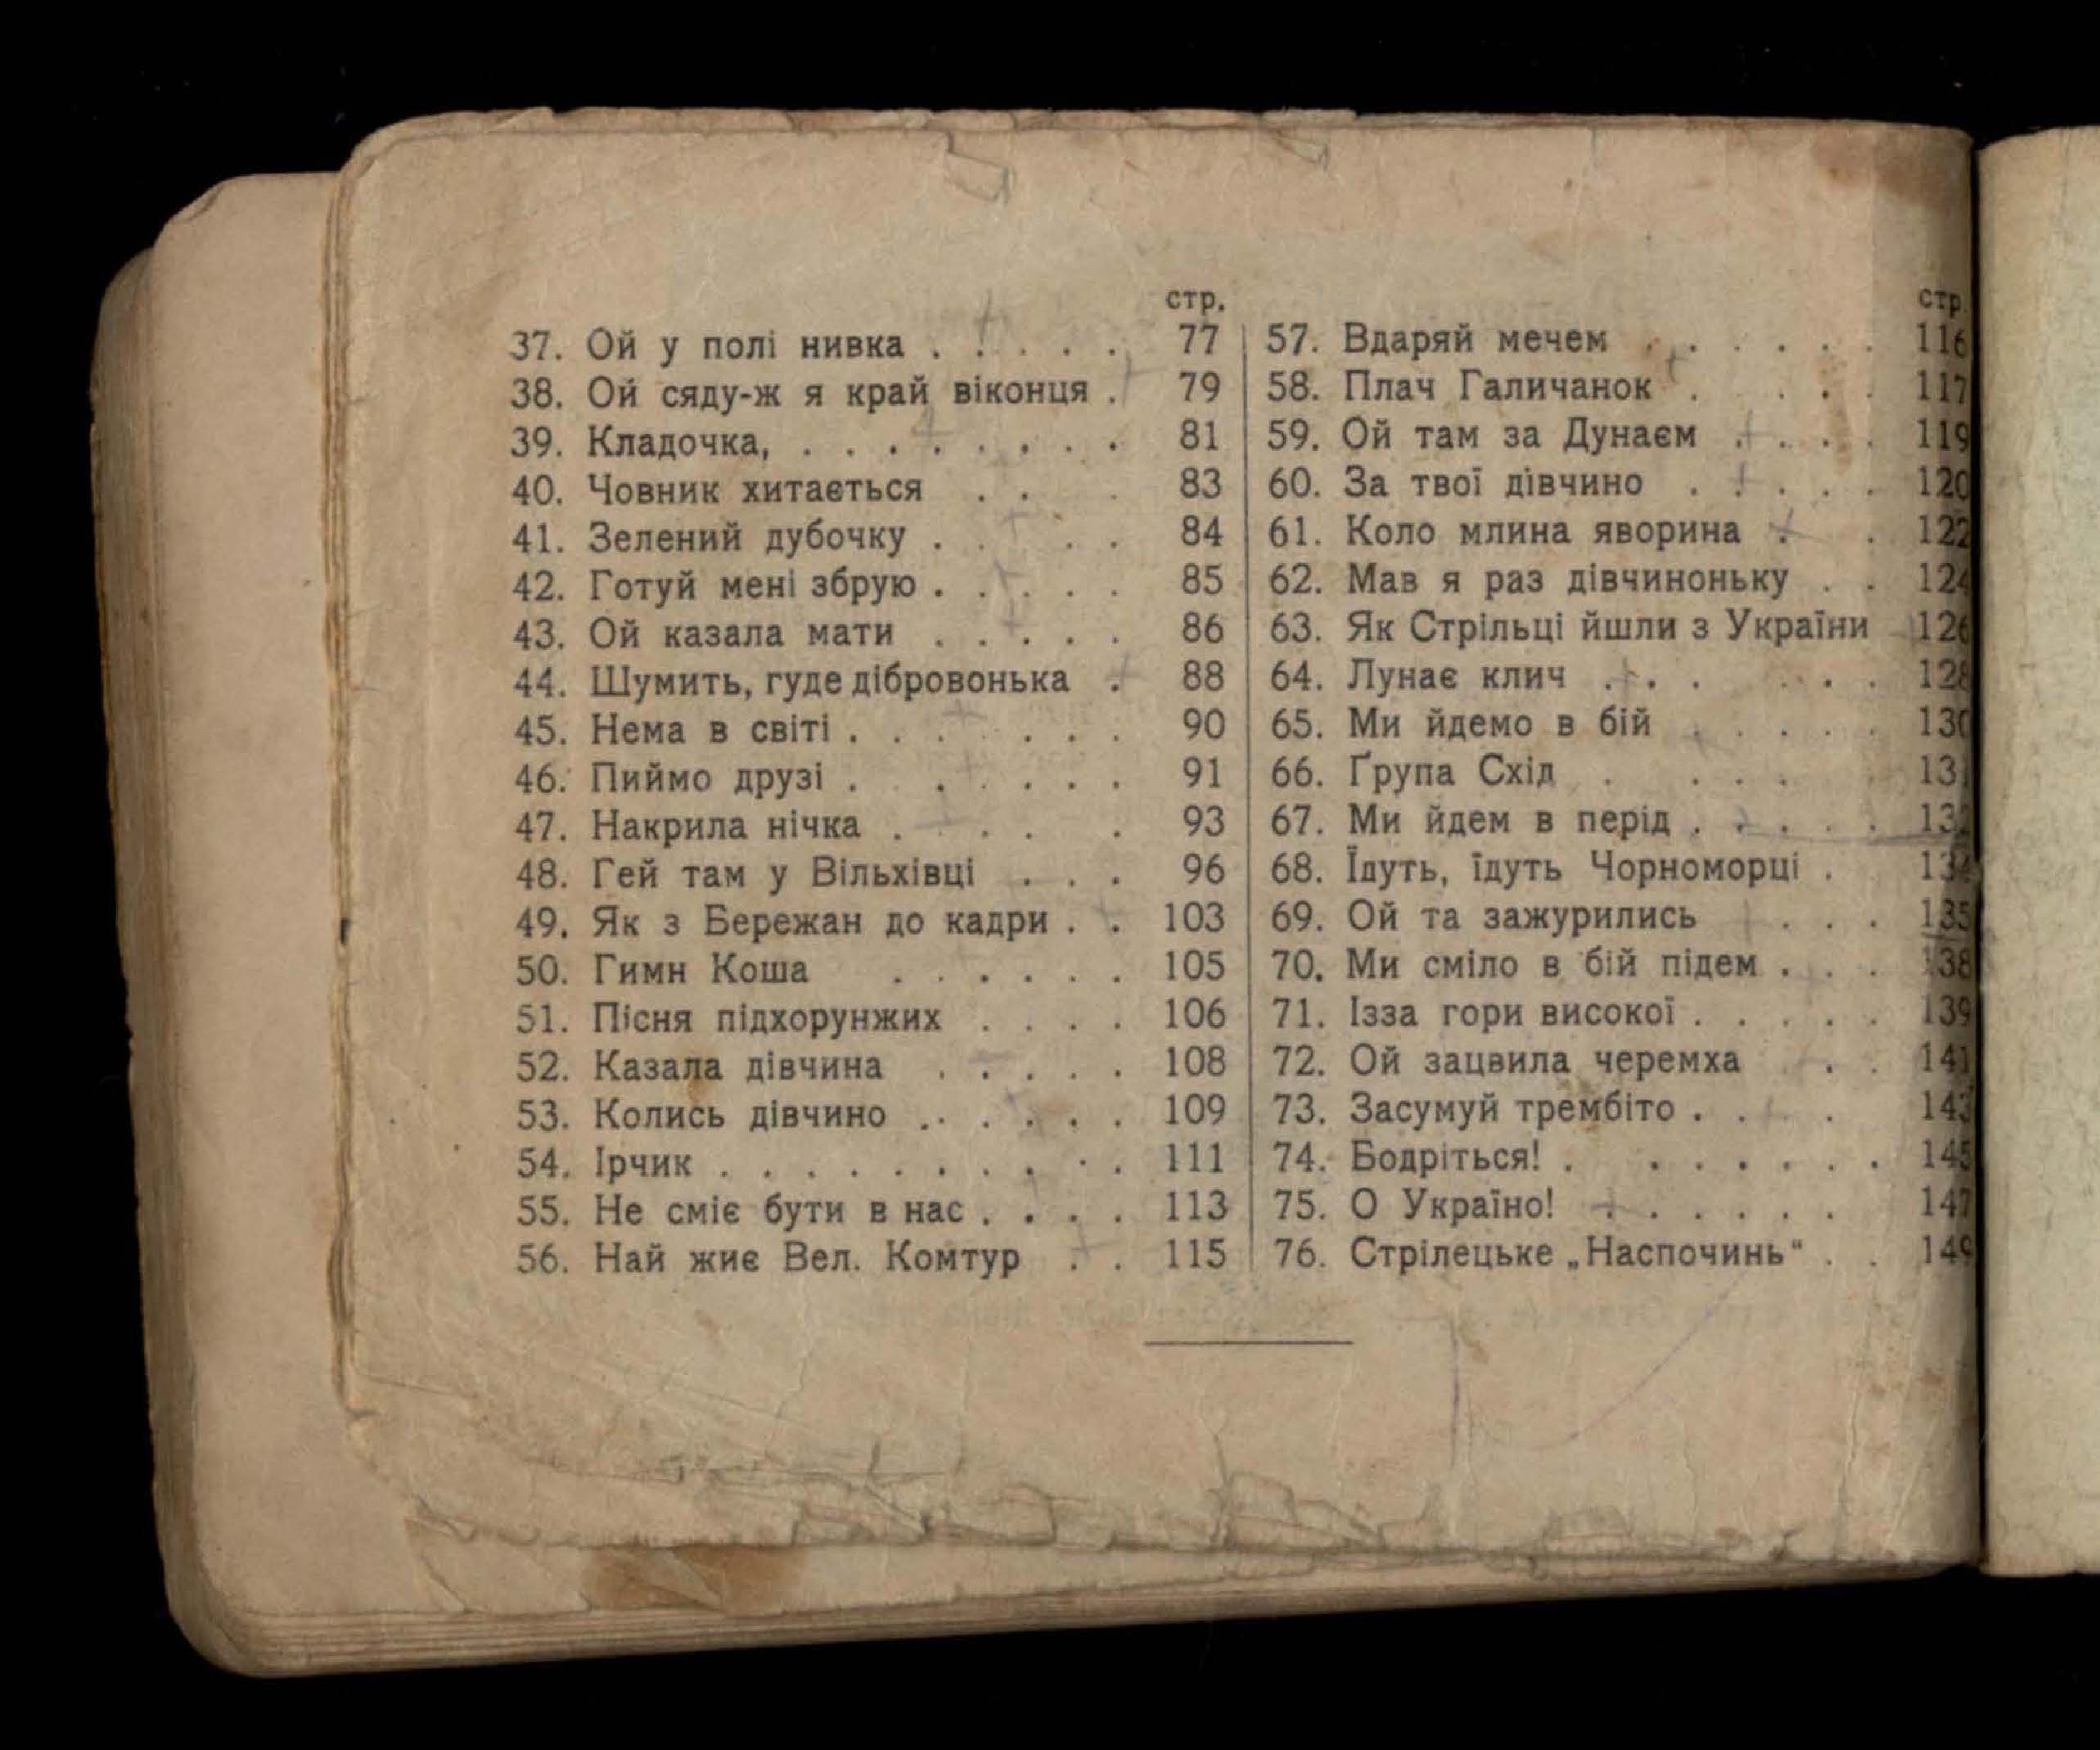 стр.
37. Ой у полі нивка . . . . . 77
38. Ой сяду-ж я край віконця . 79
39. Кладочка, . . . . . . . . 81
40. Човник хитається . . . 83
41. Зелений дубочку . . . . 84
42. Готуй мені збрую . . . . . 85
43. Ой казала мати . . . . . 86
44. Шумить, гуде дібровонька . 88
45. Нема в світі . . . . . . . 90
46. Пиймо друзі . . . . . . 91
47. Накрила нічка . . . . 93
48. Гей там у Вільхівці . . . 96
49. Як з Бережан до кадри . . 103
50. Гимн Коша . . . . . . 105
51. Пісня підхорунжих . . . . 106
52. Казала дівчина . . . . . 108
53. Колись дівчино . . . . . . 109
54. Ірчик . . . . . . . . . . 111
55. Не сміє бути в нас . . . . 113
56. Най жиє Вел. Комтур . . 115
стр
57. Вдаряй мечем . . . . . . 116
58. Плач Галичанок . . . . 117
59. Ой там за Дунаєм . . . . 119
60. За твої дівчино . . . . . 120
61. Коло млина яворина . . 122
62. Мав я раз дівчиноньку . . 124
63. Як Стрільці йшли з України 126
64. Лунає клич . . . . . . 128
65. Ми йдемо в бій . . . . . 130
66. Ґрупа Схід . . . . 13
67. Ми йдем в перід . . . . . 132
68. Їдуть, їдуть Чорноморці . 134
69. Ой та зажурились . . . 135
70. Ми сміло в бій підем . . . 138
71. Ізза гори високої . . . . . 139
72. Ой зацвила черемха . . 141
73. Засумуй трембіто . . . . 143
74. Бодріться! . . . . . . . 145
75. О Україно! . . . . . . 147
76. Стрілецьке „Наспочинь“ . . 149